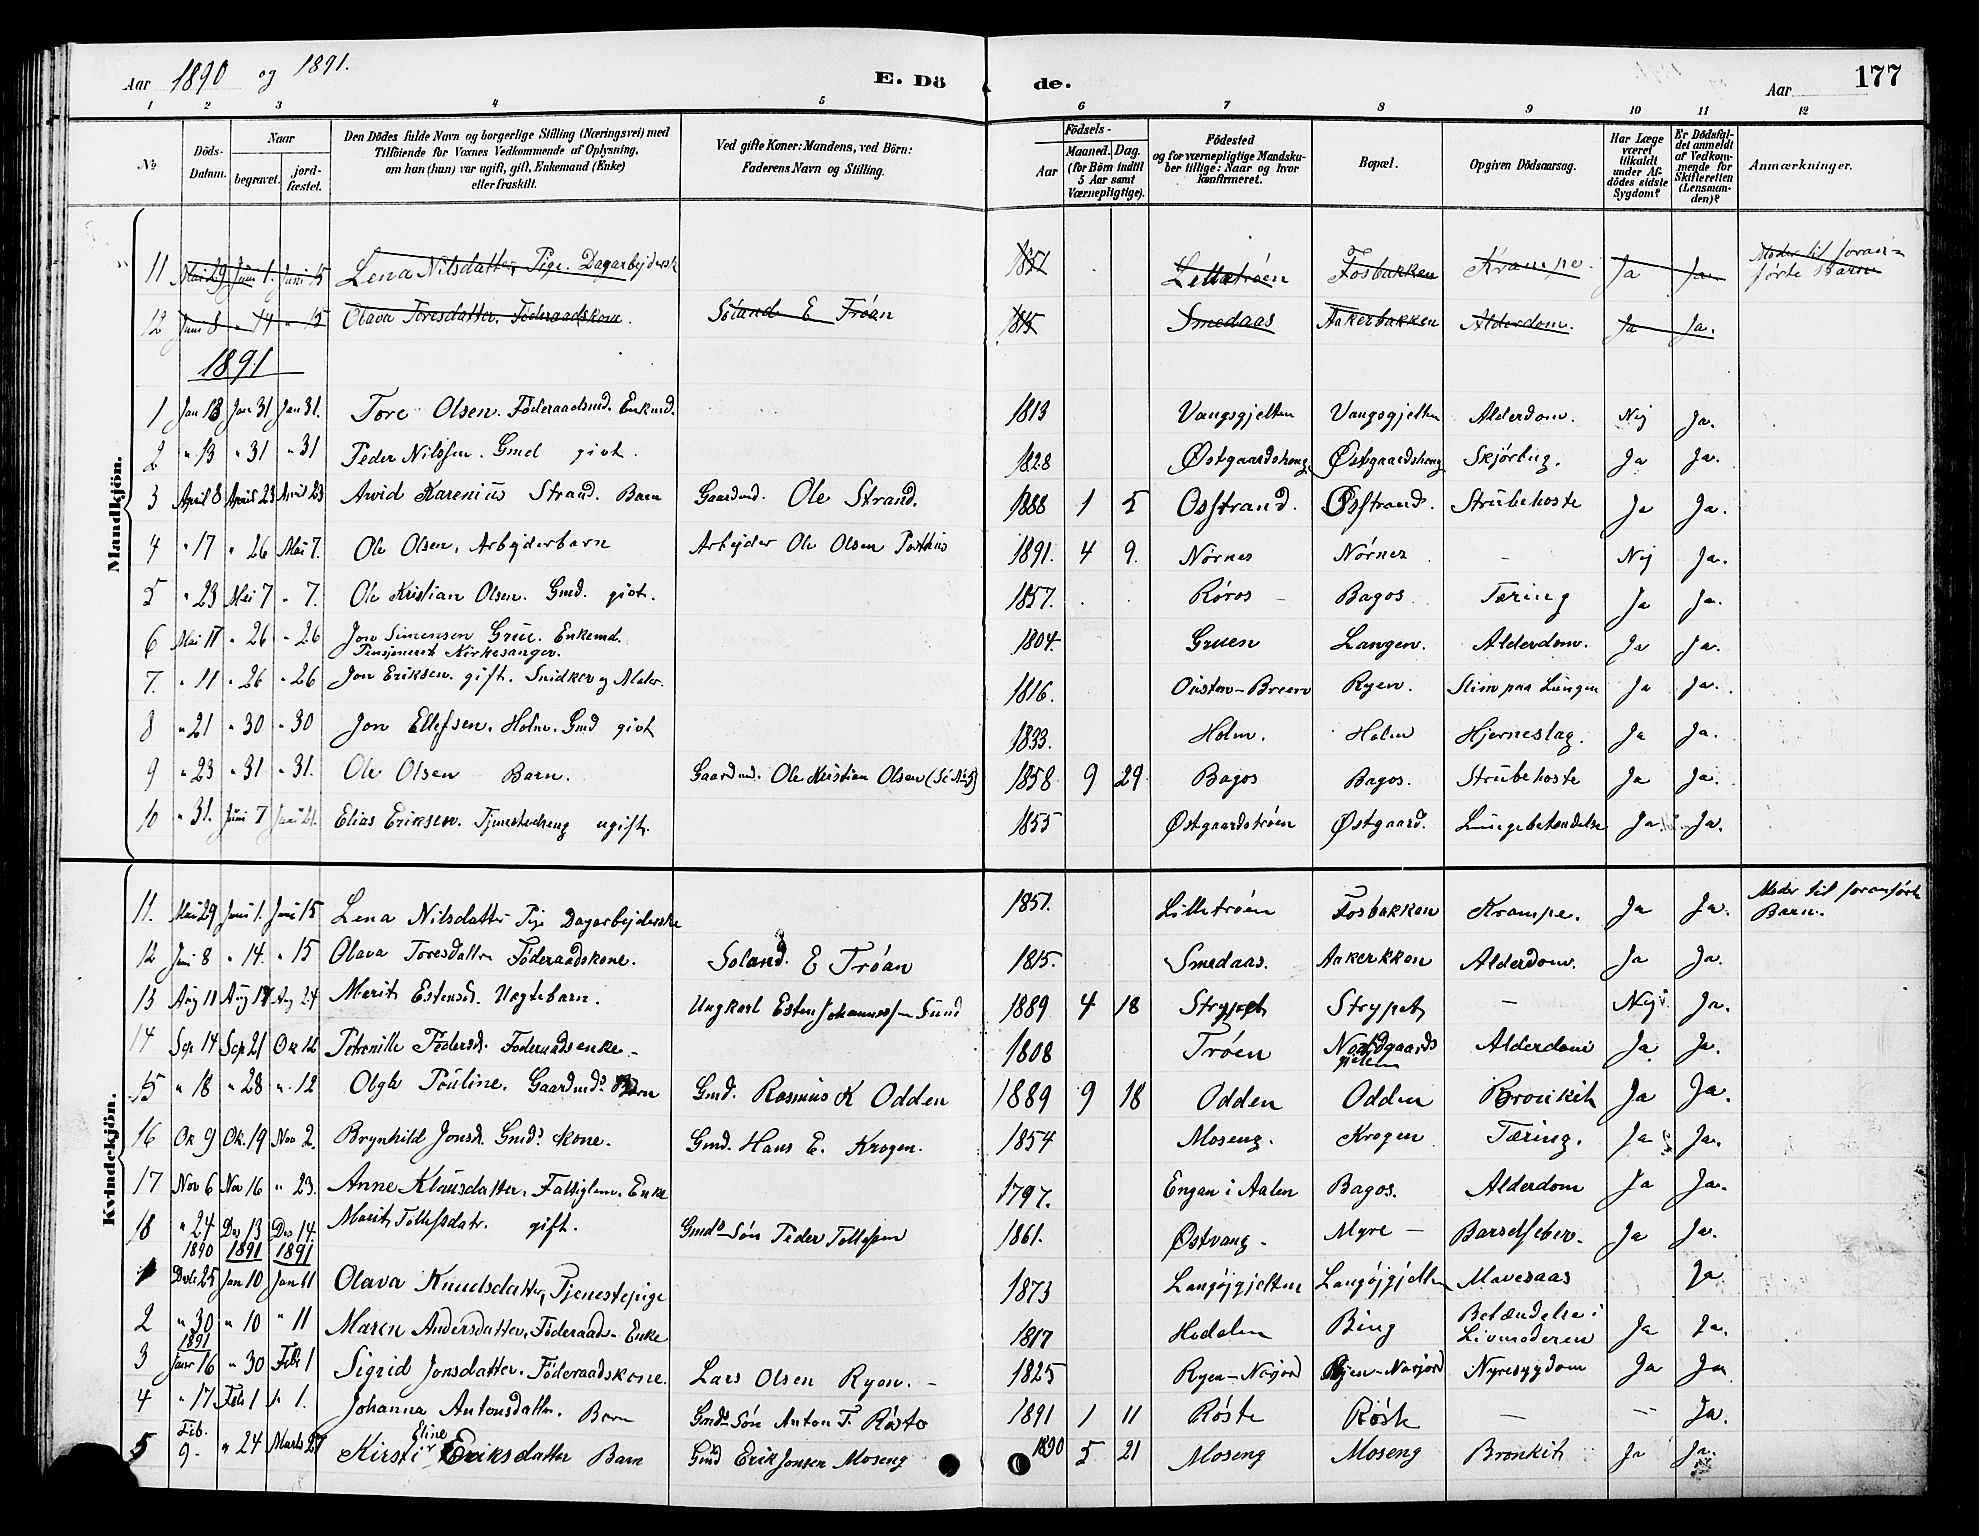 Aar 1890 og 1891. E. Dö de. Aar 177
1 2 3 4 5 6 7 8 9 10 11 12
No
Döds-Datum.
Naar
begravet.
jord-fæstet.
Den Dödes fulde Navn og borgerlige Stilling (Næringsvei) med
Tilföiende for Voxnes Vedkommende af Oplysning,
om han (hun) var ugift, gift, Enkemand (Enke)
eller fraskilt.
Ved gifte Koner: Mandens, ved Börn:
Faderens Navn og Stilling.
Födsels-
Aar
Maaned. Dag.
(for Börn indtil
5 Aar samt
Værnepligtige).
Födested
og for værnepligtige Mandska-
ber tillige: Naar og hvor
konfirmeret.
Bopæl.
Opgiven Dödsaarsag.
Har Læge
været
tilkaldt
under Af-
dödes sidste
Sygdom?
Er Dödsfal-
det anmeldt
af Vedkom-
mende for
Skifteretten
(Lensman-
den)?
Anmærkninger.
Mandkjön.
11 Mai 29 Juni 1. Juni 15 Lena Nilsdatter, Pige. Dagarbejdersk 1851 Lilletröen Fosbakken Krampe. Ja Ja Moder til foran-
förte Barn
12 Juni 8 " 14 " 15 Olava Toresdatter. Föderaadskone. Soland E Tröan 1815 Smedaas Aakerbakken Alderdom. Ja Ja.
1891
1 Jan 13 Jan 31 Jan 31. Tore Olsen. Föderaadsmd. Enkmd. 1813 Vangsgjelten Vangsgjelten Alderdom. Nej Ja.
2 " 13 " 31 " 31 Peder Nilssen. Gmd givt. 1828 Østgaardshaug Østgaardshaug Skjörbug. Ja Ja.
3 April 8 April 23 April 23 Arvid Karenius Strand. Barn Gaardmd. Ole Strand. 1888 1 5 Osstrand. Osstrand. Strubehoste Ja Ja.
4 " 17 " 26 Mai 7. Ole Olsen, Arbejderbarn Arbejder Ole Olsen Posthus 1891. 4 9. Nörnes Nörnes – Nej Ja.
5 " 23 Mai 7 " 7. Ole Kristian Olsen. Gmd. givt. 1857. Röros Bagos Tæring Ja Ja.
6 Mai 17 " 26 " 26 Jon Simensen Grue. Enkemd.
Pensjoneret Kirkesanger. 1804. Gruen Langen. Alderdom. Ja Ja.
7. " 11 " 26 " 26 Jon Eriksen. gift. Snidker og Maler. 1816. Ousten-Breen Ryen. Slim paa Lungen Ja Ja.
8 " 21 " 30 " 30 Jon Ellefsen. Holm. Gmd givt 1833. Holm. Holm Hjerneslag. Ja Ja.
9 " 23 " 31 " 31. Ole Olsen Barn. Gaardmd. Ole Kristian Olsen (Se No 5) 1858 9 29 Bagos Bagos. Strubehoste Ja Ja.
10 " 31. Juni 7 Juni 21. Elias Eriksen. Tjenestedreng ugift. 1855 Østgaardströen Østgaard. Lungebetendelse Ja Ja.
Kvindekjön.
11. Mai 29 Juni 1. Juni 15 Lena Nilsdatter Pige Dagarbejderske 1851. Lilletröen Fosbakken Krampe. Ja Ja. Moder til foranförte
Barn.
12 Juni 8 " 14. " 15 Olava Toresdatter Föderaadskone. Soland. E Tröan 1815. Smedaas. Aakerkken Alderdom. Ja Ja.
13 Aug 11 Aug 17 Aug 24 Merit Estensd. Uegtebarn. Ungkarl Esten Johannessen Sund 1889 4 18 Strypet Strypet – Nej Ja.
14 Sep 14 Sep 21 Ok 12 Petronille Pedersd. Föderaadsenke – 1808 Tröen Nordgaards
gjelten Alderdom Ja. Ja.
15 " 18 " 28 " 12 Olga Pouline. Gaardmds. Barn Gmd. Rasmus K Odden 1889 9 18 Odden Odden Bronkit Ja Ja.
16 Ok 9 Ok. 19 Nov 2. Brynhild Jonsd. Gmds Kone. Gmd. Hans E. Krogen. 1854 Moseng. Krogen Tæring. Ja Ja.
17 Nov 6 Nov 16 " 23. Anne Klausdatter. Fattiglem. Enke 1797. Engan i Aalen Bagos. Alderdom Ja Ja.
18 " 24 De 13 De 14. Marit Tollefsdatr. gift. Gmds Sön Peder Tollefsen 1861. Østvang – Myre – Barselfeber. Ja Ja.
1890 1891 1891
1 Decbr 25 Jan 10 Jan 11 Olava Knudsdatter, Tjenestepige 1873 Langöjgjelten Langöjgjelten Mavesaar Ja
2 " 30 " 10 " 11 Maren Andersdatter. Föderaads-Enke 1817 Hedalen Bing Betændelse i
Livmoderen Ja Ja.
1891
3 Janr 16 " 30 Feb 1 Sigrid Jonsdatter. Föderaadskone. Lars Olsen Ryen. – 1825 Ryen–Norjord Ryen–Norjord Nyresygdom Ja Ja
4 " 17 Feb 1 " 1. Johanna Antonsdattr. Barn Gmds Sön Anton T. Rösto 1891 1 11 Röste Röste – – Ja.
5 Feb.
9. " 24 Marts 27 Kirsti Eline Eriksdatter Barn Gmd Erik Jonsen Moseng 1890 5 21 Moseng Moseng Bronkit Ja Ja.